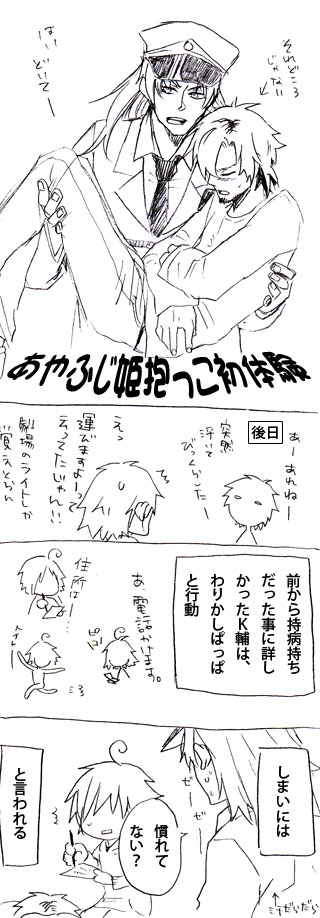 それどころ
じゃない
はいどいてー
あやふじ姫抱っこ初体験
後日
あーあれねー
突然
浮いて
びっくらこいたー
えっ
運びますよーって
言ってたじゃん!!
劇場のライトしか
覚えとらん
前から持病持ち
だった事に詳し
かったK輔は、
わりかしぱっぱ
と行動
あ、電話かけます。
ピッ
住所はー
しまいには
ぜーぜー
慣れて
ない?
と言われる